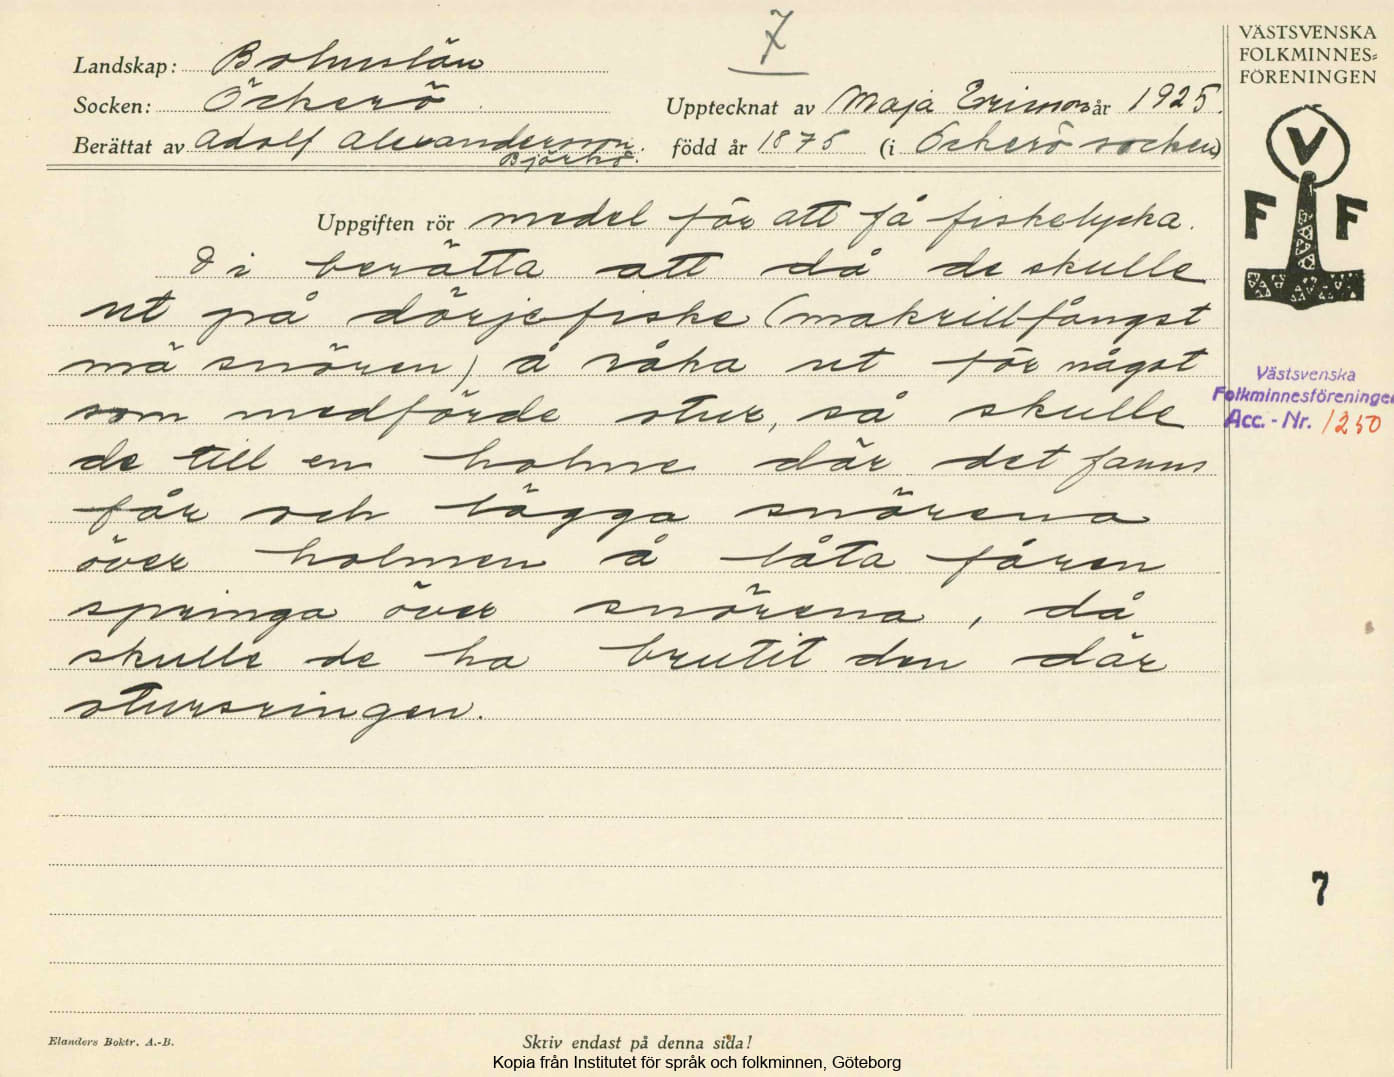 7
VÄSTSVENSKA
FOLKMINNES=
FÖRENINGEN
Landskap: Bohuslän
Socken: Öckerö
Upptecknat av Maja Ericson år 1925.
Berättat av Adolf Alexandersson.
Björkö.
född år 1875 (i Öckerö socken)
V
F F
Uppgiften rör medel för att få fiskelycka.
Di berätta att då de skulle
ut på dörjefiske (makrillfångst
mä snören) å råka ut för något
som medförde stur, så skulle
de till en holme där det fanns
får och lägga snörena
över holmen å låta fåren
springa över snörena, då
skulle de ha brutit den där
stursringen.
Västsvenska
Folkminnesföreningen
Acc.-Nr. 1250
7
Elanders Boktr. A.-B.
Skriv endast på denna sida!
Kopia från Institutet för språk och folkminnen, Göteborg